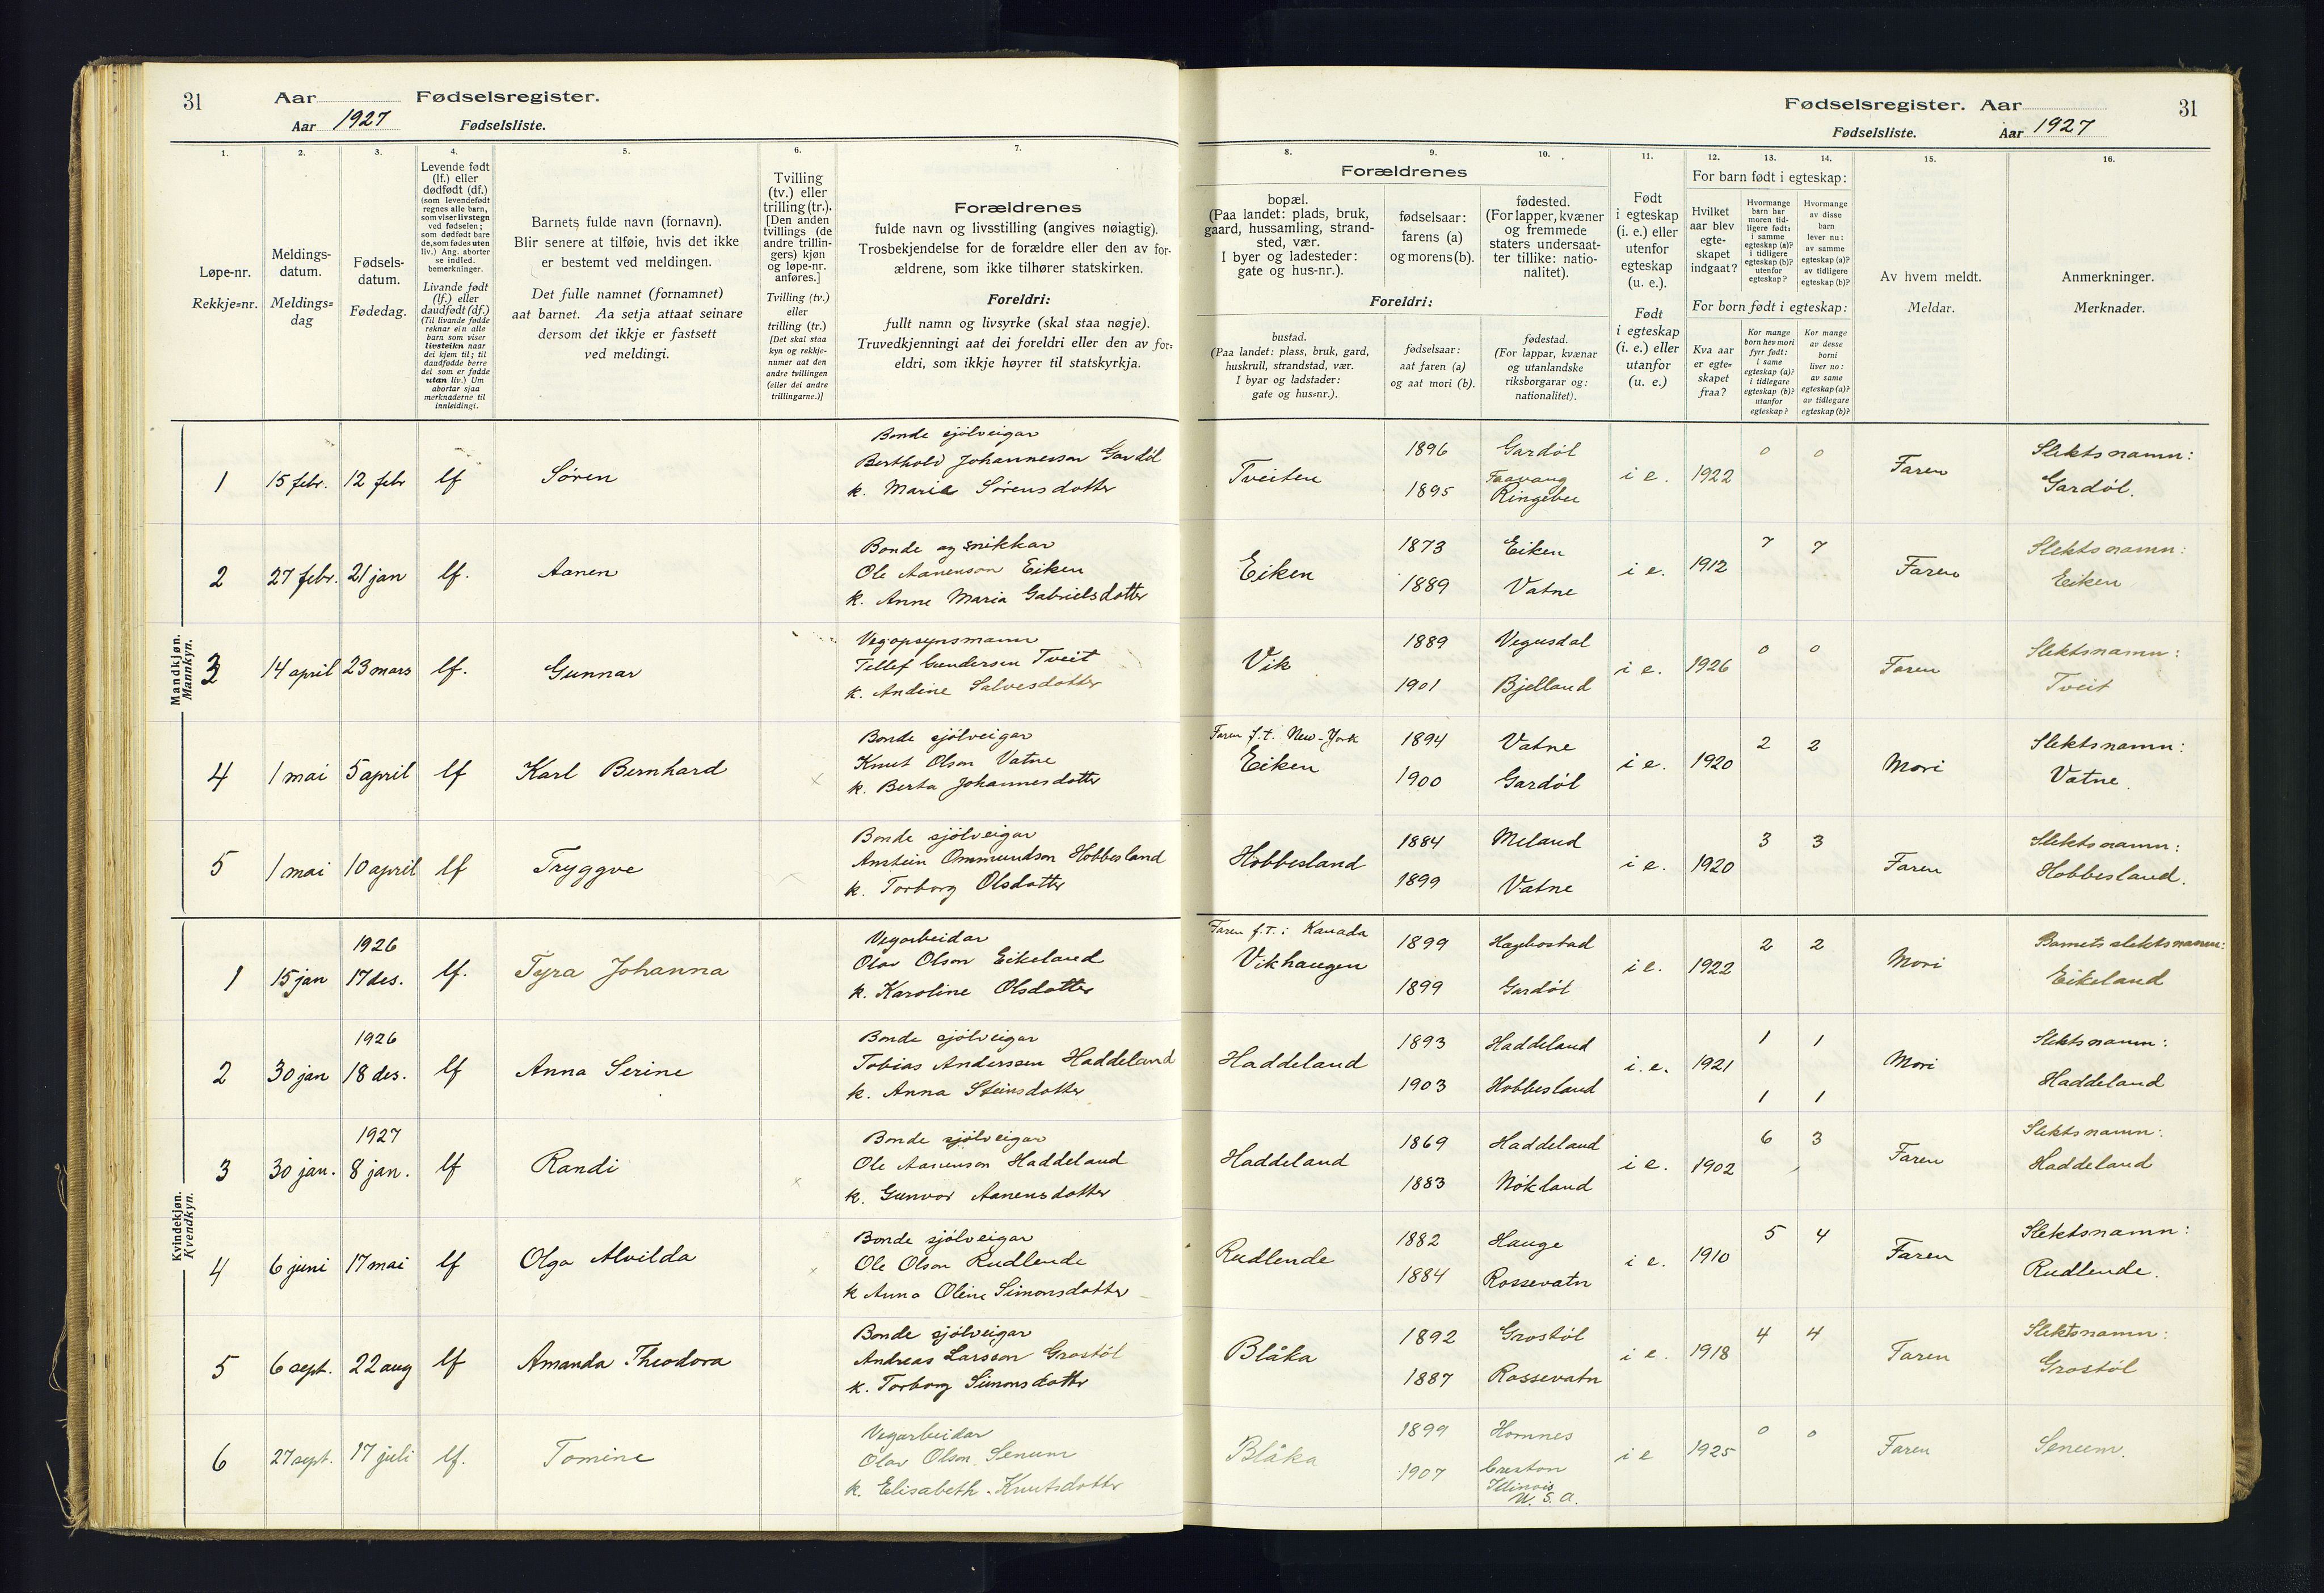 31 Aar Fødselsregister.
Aar 1927 Fødselsliste.
1.
Løpe-nr.
Rekkje=nr.
2.
Meldings-
datum.
Meldings=
dag
3.
Fødsels-
datum.
Fødedag.
4.
Levende født
(lf.) eller
dødfødt (df.)
(som levendefødt
regnes alle barn,
som viser livstegn
ved fødselen;
som dødfødt bare
de, som fødes uten
liv.) Ang. aborter
se indled.
bemerkninger.
Livande født
(lf.) eller
daudfødt (df.)
(Til livande fødde
reknar ein alle
barn som viser
livsteikn naar
dei kjem til; til
daudfødde berre
dei som er fødde
utan liv.) Um
abortar sjaa
merknaderne til
innleidingi.
5.
Barnets fulde navn (fornavn).
Blir senere at tilføie, hvis det ikke
er bestemt ved meldingen.
Det fulle namnet (fornamnet)
aat barnet. Aa setja attaat seinare
dersom det ikkje er fastsett
ved meldingi.
6.
Tvilling
(tv.) eller
trilling (tr.).
[Den anden
tvillings (de
andre trillin-
gers) kjøn
og løpe-nr.
anføres.]
Tvilling (tv.)
eller
trilling (tr.)
[Det skal staa
kyn og rekkje-
numer aat den
andre tvillingen
(eller dei andre
trillingarne.)]
7.
Forældrenes
fulde navn og livsstilling (angives nøiagtig).
Trosbekjendelse for de forældre eller den av for-
ældrene, som ikke tilhører statskirken.
Foreldri:
fullt namn og livsyrke (skal staa nøgje).
Truvedkjenningi aat dei foreldri eller den av for=
eldri, som ikkje høyrer til statskyrkja.
Mandkjøn.
Mannkyn.
1 15 febr. 12 febr lf Søren
Bonde sjølveigar
Berthold Johannesson Gardøl
k. Maria Sørensdotter
2 27 febr. 21 jan lf. Aanen
Bonde og snikkar
Ole Aanenson Eiken
k. Anne Maria Gabrielsdotter
3 14 april 23 mars lf. Gunnar
Vegopsynsmann
Tellef Gunderson Tveit
k. Andine Salvesdotter
4 1 mai 5 april lf Karl Bernhard
Bonde sjølveigar
Knut Olson Vatne
k. Berta Johannesdotter
5 1 mai 10 april lf Tryggve
Bonde sjølveigar
Anstein Ommundson Hobbesland
k. Torborg Olsdotter
Kvindekjøn.
Kvendkyn.
1926
1 15 jan 17 des. lf. Tyra Johanna
Vegarbeidar
Olav Olson Eikeland
k. Karoline Olsdotter
1926
2 30 jan 18 des. lf Anna Serine
Bonde sjølveigar
Tobias Anderssen Haddeland
k. Anna Steinsdotter
1927
3 30 jan. 8 jan. lf Randi
Bonde sjølveigar
Ole Aanenson Haddeland
k. Gunvor Aanensdotter
4 6 juni 17 mai lf Olga Alvilda
Bonde sjølveigar
Ole Olson Rudlende
k Anna Oline Simonsdotter
5 6 sept. 22 aug lf Amanda Theodora
Bonde sjølveigar
Andreas Larsson Grostøl
k. Torborg Simonsdotter
6 27 sept. 17 juli lf. Tomine
Vegarbeidar
Olav Olson Senum
k. Elisabeth Knutsdotter
Fødselsregister. Aar 31
Fødselsliste. Aar 1927
Forældrenes
8.
bopæl.
(Paa landet: plads, bruk,
gaard, hussamling, strand-
sted, vær.
I byer og ladesteder:
gate og hus-nr.).
9.
fødselsaar:
farens (a)
og morens (b).
10.
fødested.
(For lapper, kvæner
og fremmede
staters undersaat-
ter tillike: natio-
nalitet).
Foreldri:
bustad.
(Paa landet: plass, bruk, gard,
huskrull, strandstad, vær.
I byar og ladstader:
gate og hus=nr.).
fødselsaar:
aat faren (a)
og aat mori (b).
fødestad.
(For lappar, kvænar
og utanlandske
riksborgarar og:
nationalitet).
11.
Født
i egteskap
(i. e.) eller
utenfor
egteskap
(u. e.).
Født
i egteskap
(i. e.) eller
utanfor
(u. e.)
12. 13. 14.
For barn født i egteskap:
Hvilket
aar blev
egte-
skapet
indgaat?
Hvormange
barn har
moren tid-
ligere født:
i samme
egteskap (a)?
i tidligere
egteskap (b)?
utenfor
egteskap?
Hvormange
av disse
barn
lever nu:
av samme
egteskap (a)?
av tidligere
egteskap (b)?
For born født i egteskap:
Kva aar
er egte=
skapet
fraa?
Kor mange
born hev mori
fyrr født:
i same
egteskap (a)?
i tidlegare
egteskap (b)?
utanfor
egteskap?
Kor mange
av desse
borni
liver no:
av same
egteskap (a)?
av tidlegare
egteskap (b)?
15.
Av hvem meldt.
Meldar.
16.
Anmerkninger.
Merknader.
Tveiten 1896 Gardøl i e. 1922 0 0 Faren Slektsnamn:
1895 Faavang
Ringebu Gardøl.
Eiken 1873 Eiken i e. 1912 7 7 Faren Slektsnamn:
1889 Vatne Eiken
Vik 1889 Vegusdal i e. 1926 0 0 Faren Slektsnamn:
1901 Bjelland Tveit
Faren f.t. New-York
Eiken 1894 Vatne i e. 1920 2 2 Mori Slektsnamn:
1900 Gardøl Vatne.
Hobbesland 1884 Meland i e. 1920 3 3 Faren Slektsnamn:
1899 Vatne Hobbesland.
Faren f.T.: Kanada
Vikhaugen 1899 Hægebostad i e. 1922 2 2 Mori Barnets slektsnamn:
1899 Gardøl Eikeland
Haddeland 1893 Haddeland i. e. 1921 1 1 Mori Slektsnamn:
1903 Hobbesland 1 1 Haddeland
Haddeland 1869 Haddeland i e. 1902 6 3 Faren Slektsnamn:
1883 Nøkland Haddeland
Rudlende 1882 Hauge i e. 1910 5 4 Faren Slektsnamn:
1884 Rossevatn Rudlende.
Blåka 1892 Grostøl i e. 1918 4 4 Faren Slektsnamn:
1887 Rossevatn Grostøl
Blåka 1899 Homnes i e 1925 0 0 Faren Senum.
1907 Creston
Illinois
U. S. A.